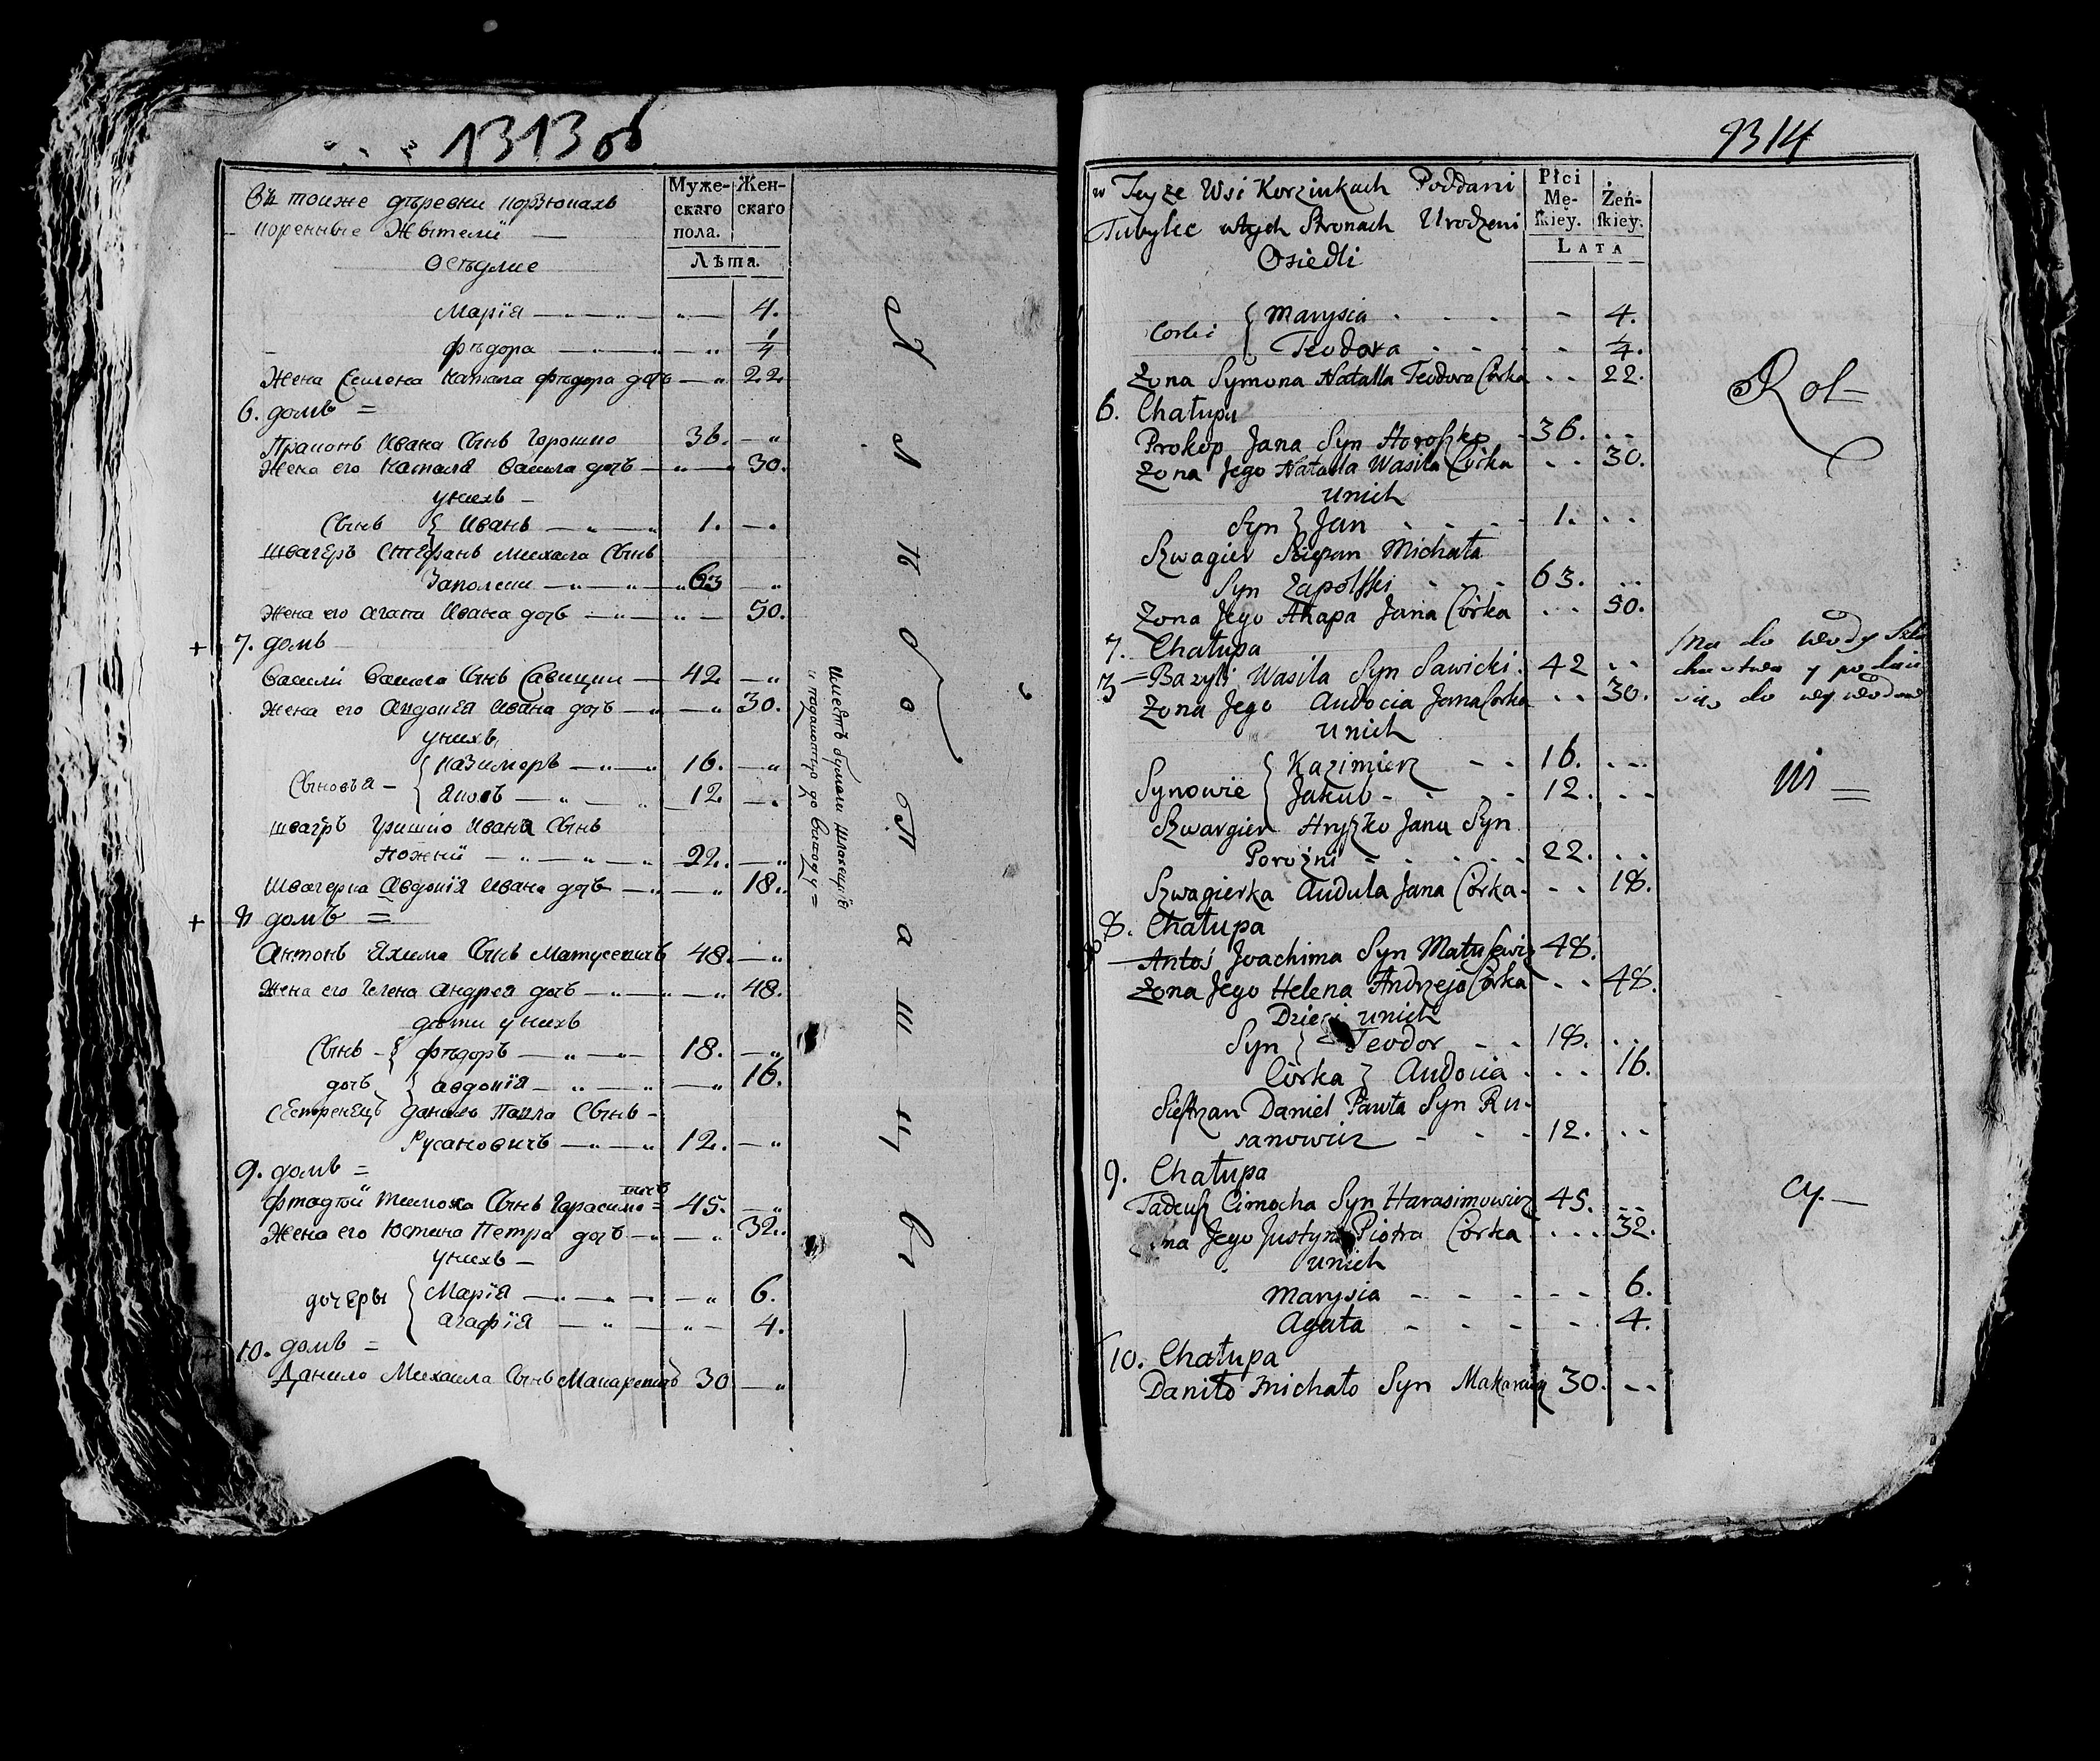 1313 об
Въ тоиже деревни корзюкахъ
коренные Жытели
Оседлие
Муже-
скаго
пола.
Жен-
скаго
Лѣта.
Марія — „ — „ — 4.
Фѣдора — „ — „ 1/4
Жена Семена Натала Фѣдора дочь — „ 22
6. домъ =
Пракопъ Ивана Сынъ Горошко 36. — „
Жена его Натала Васила дочъ — „ — „ 30.
унихъ —
Сынъ { Иванъ — „ — „ 1. — „
швагеръ Стефанъ Михала Сынъ
Заполски — „ — „ — „ 63 — „
Жена его Агапа Ивана дочъ — „ — „ — 50.
+ 7. домъ
Василий Васила Сынъ Савицки — 42 — „
Жена его Авдокія Ивана дочъ — „ — „ 30.
унихъ
Сыновья — { Казимеръ — „ — „ 16. — „
Яковъ — „ — „ 12 — „
швагръ Гришко Ивана Сынъ
Пожни — „ — „ — „ 22. — „
Швагерка Авдокія Ивана дочъ — „ — „ 18.
+ 8 домъ =
Антонъ Яхима Сынъ Матусевичъ 48. — „
Жена его Гелена Андрея дочъ — „ — „ 48.
дѣти унихъ
Сынъ — { Фѣдоръ — „ — „ 18. — „
дочъ } Авдокія — „ — „ — „ 16.
Сестренецъ Данило Павла Сынъ —
Русановичъ — „ — „ 12. — „
9. домъ =
Фтадѣй Тимоха Сынъ Гарасимо=
вичъ 45. — „
Жена его Юстина Петра дочъ — „ — „ 32.
унихъ —
дочеры { Марія — „ — „ — „ 6.
Агафія — „ — „ — 4.
10. домъ =
Данило Михаила Сынъ Макаревичъ 30 — „
Имеетъ
и до
1314
w Teyże Wsi Korziukach Poddani
Tubylce wtych Stronach Urodzeni
Osiedli
Płci
Mę-
ſkiey.
Żeń-
ſkiey.
LATA
Corki { Marysia - - - 4.
Teodora - - - 1/4.
Zona Symona Natalla Teodora Córka - - 22.
6. Chałupa
Prokop Jana Syn Horoſzko - 36. - -
Zona Jego Natalla Wasila Córka - - 30.
unich
Syn } Jan - - - 1. - -
Szwagier Stepan Michała
Syn Zapolſki - - - 63. - -
Zona Jego Ahapa Jana Córka - - - 50.
7. Chałupa
3 — Bazyli Wasila Syn Sawicki. 42 - -
Zona Jego Audocia Jana Corka - - 30.
unich
Synowie { Kazimierz - - 16. - -
Jakub - - - 12. - -
Szwargier Hryſzko Jana Syn
Porożni - - - 22. - -
Szwagierka Audula Jana Córka - - - 18.
8. Chałupa
Antoś Joachima Syn Matuſewicz 48.
Zona Jego Helena Andrzeja Córka - - 48.
Dzieci unich
Syn { Teodor - - 18. - -
Córka } Audocia - - - 16.
Sieſtrzan Daniel Pawła Syn Ru-
sanowicz - - - 12. - -
9. Chałupa
Tadeuſz Cimocha Syn Harasimowicz 45. - -
Zona Jego Justyna Piotra Córka - - - 32.
unich
Marysia - - - - 6.
Agata - - - - 4.
10. Chałupa
Daniło Michało Syn Makarewicz 30. - -
Rol=
Ma do wody Szla
chectwa y podaie
się do wywodow
ni =
cy. —